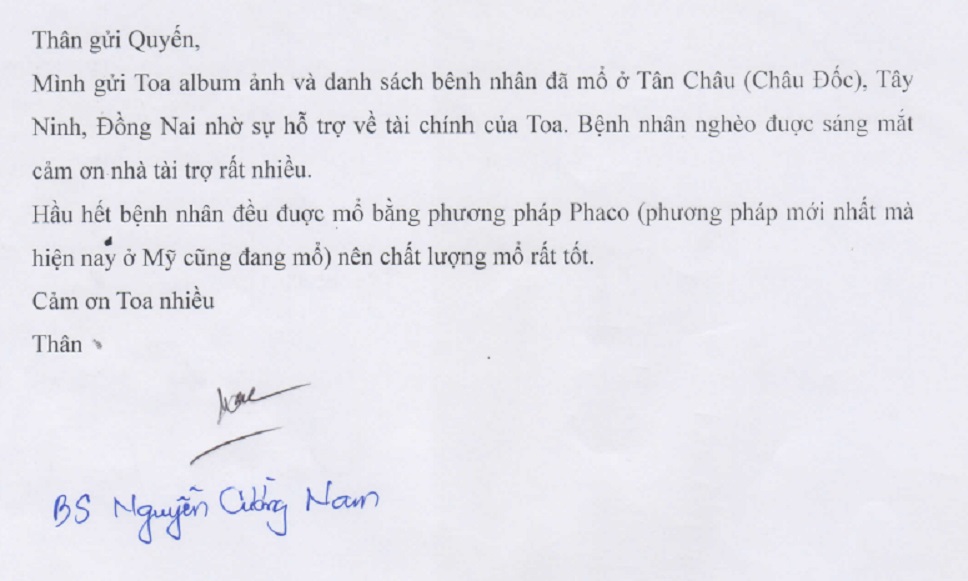 Thân gửi Quyến,
Mình gửi Toa album ảnh và danh sách bênh nhân đã mổ ở Tân Châu (Châu Đốc), Tây
Ninh, Đồng Nai nhờ sự hỗ trợ về tài chính của Toa. Bệnh nhân nghèo đuợc sáng mắt
cảm ơn nhà tài trợ rất nhiều.
Hầu hết bệnh nhân đều đuợc mổ bằng phương pháp Phaco (phương pháp mới nhất mà
hiện nay ở Mỹ cũng đang mổ) nên chất lượng mổ rất tốt.
Cảm ơn Toa nhiều
Thân
BS Nguyễn Cường Nam